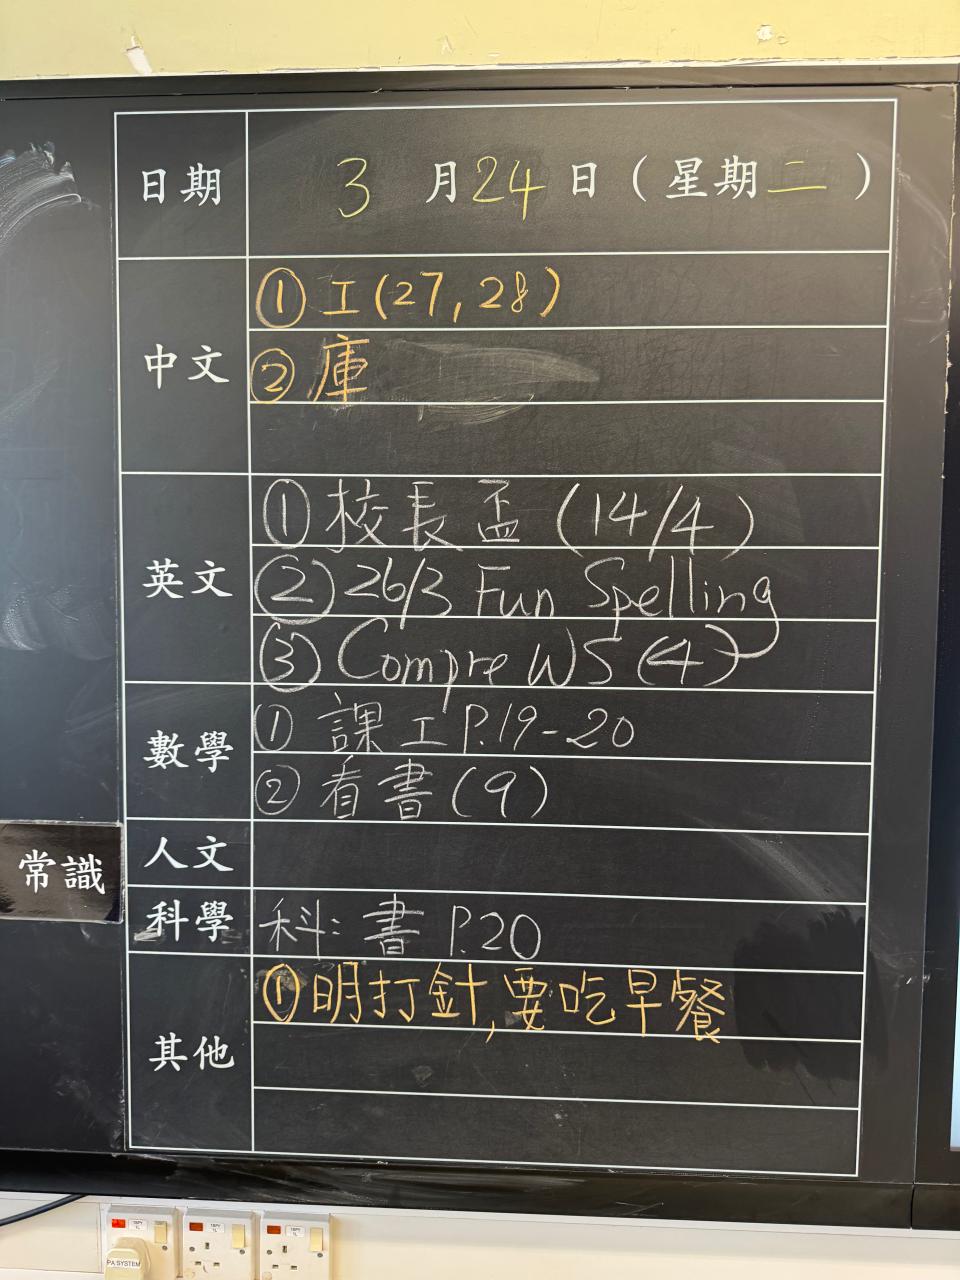 日期 3月24日（星期二）
中文 ①工(27, 28)
②庫
英文 ①校長盃 (14/4)
②26/3 Fun Spelling
③Compre WS (4)
數學 ①課工P.19-20
②看書(9)
人文
常識
科學 科: 書 P.20
其他 ①明打針,要吃早餐
PA SYSTEM